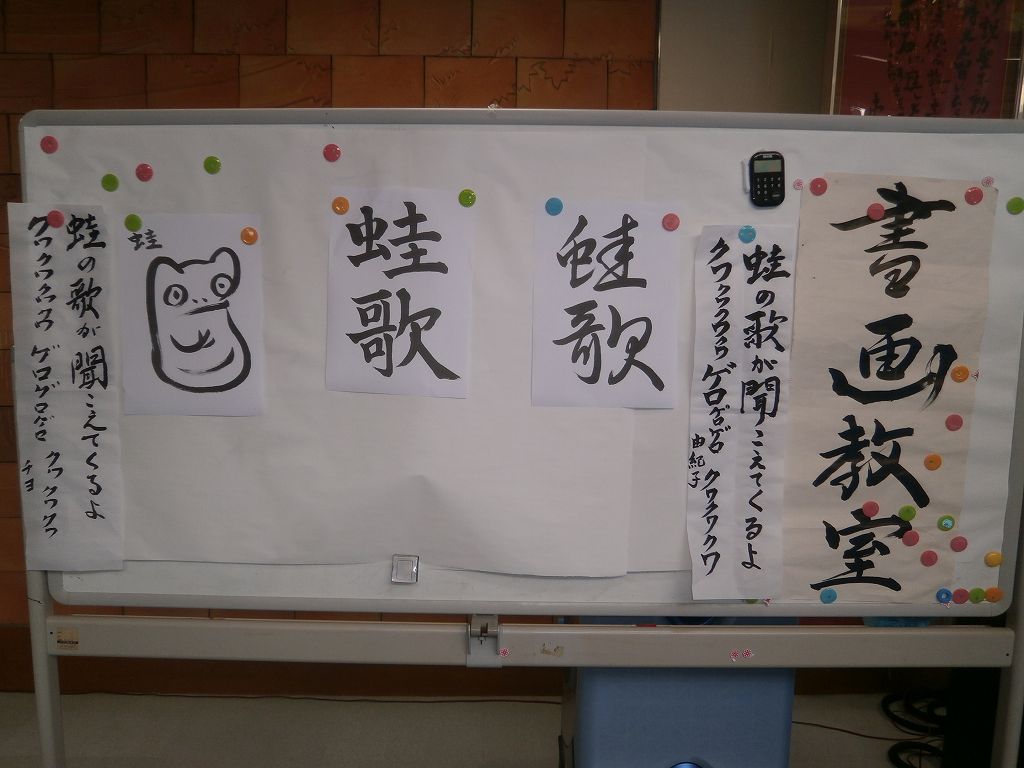 書画教室
蛙の歌が聞こえてくるよ
クワクワクワクワ ゲロゲロゲロ クワクワクワ
由紀子
蛙歌
蛙歌
蛙
蛙の歌が聞こえてくるよ
クワクワクワクワ ゲロゲロゲロ クワクワクワ
チヨ